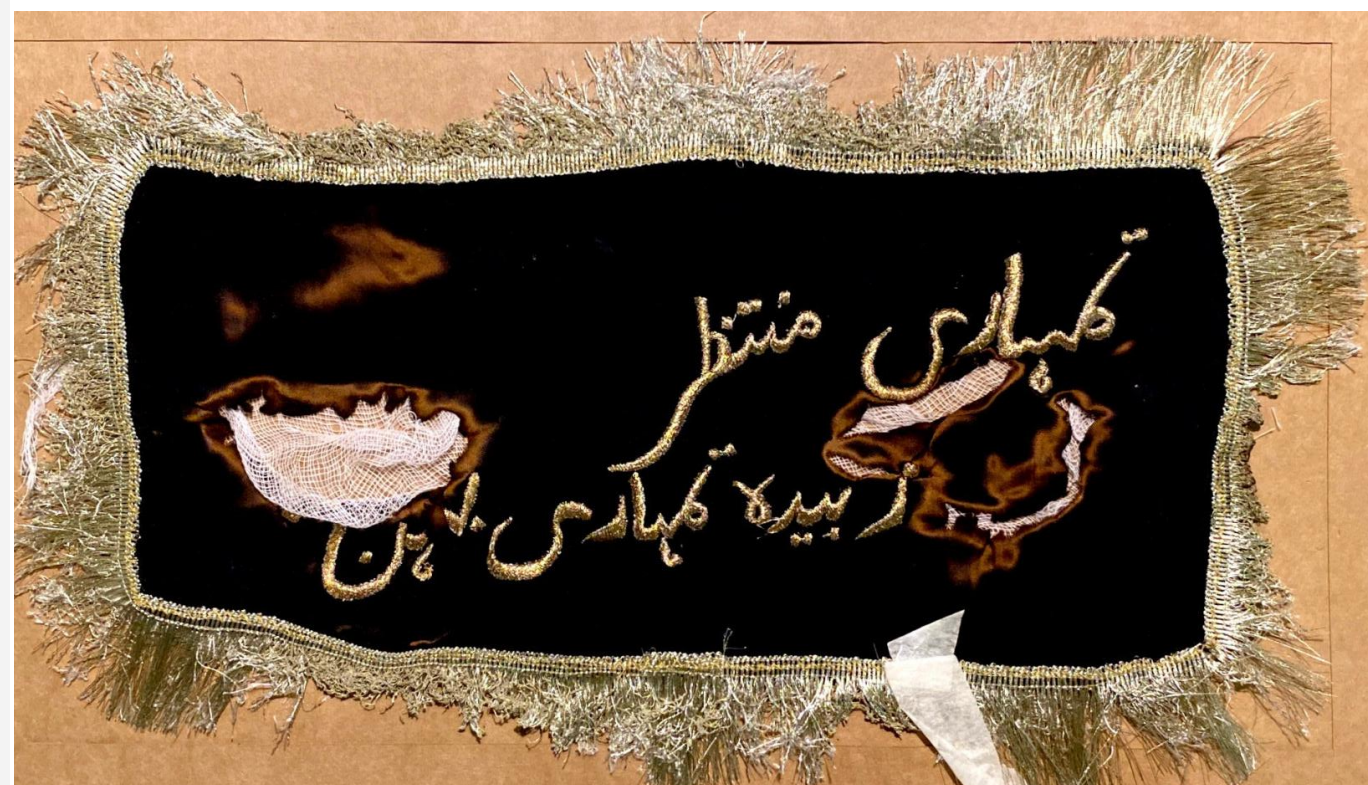 تمہاری منتظر
زبیدہ تمہاری بہن